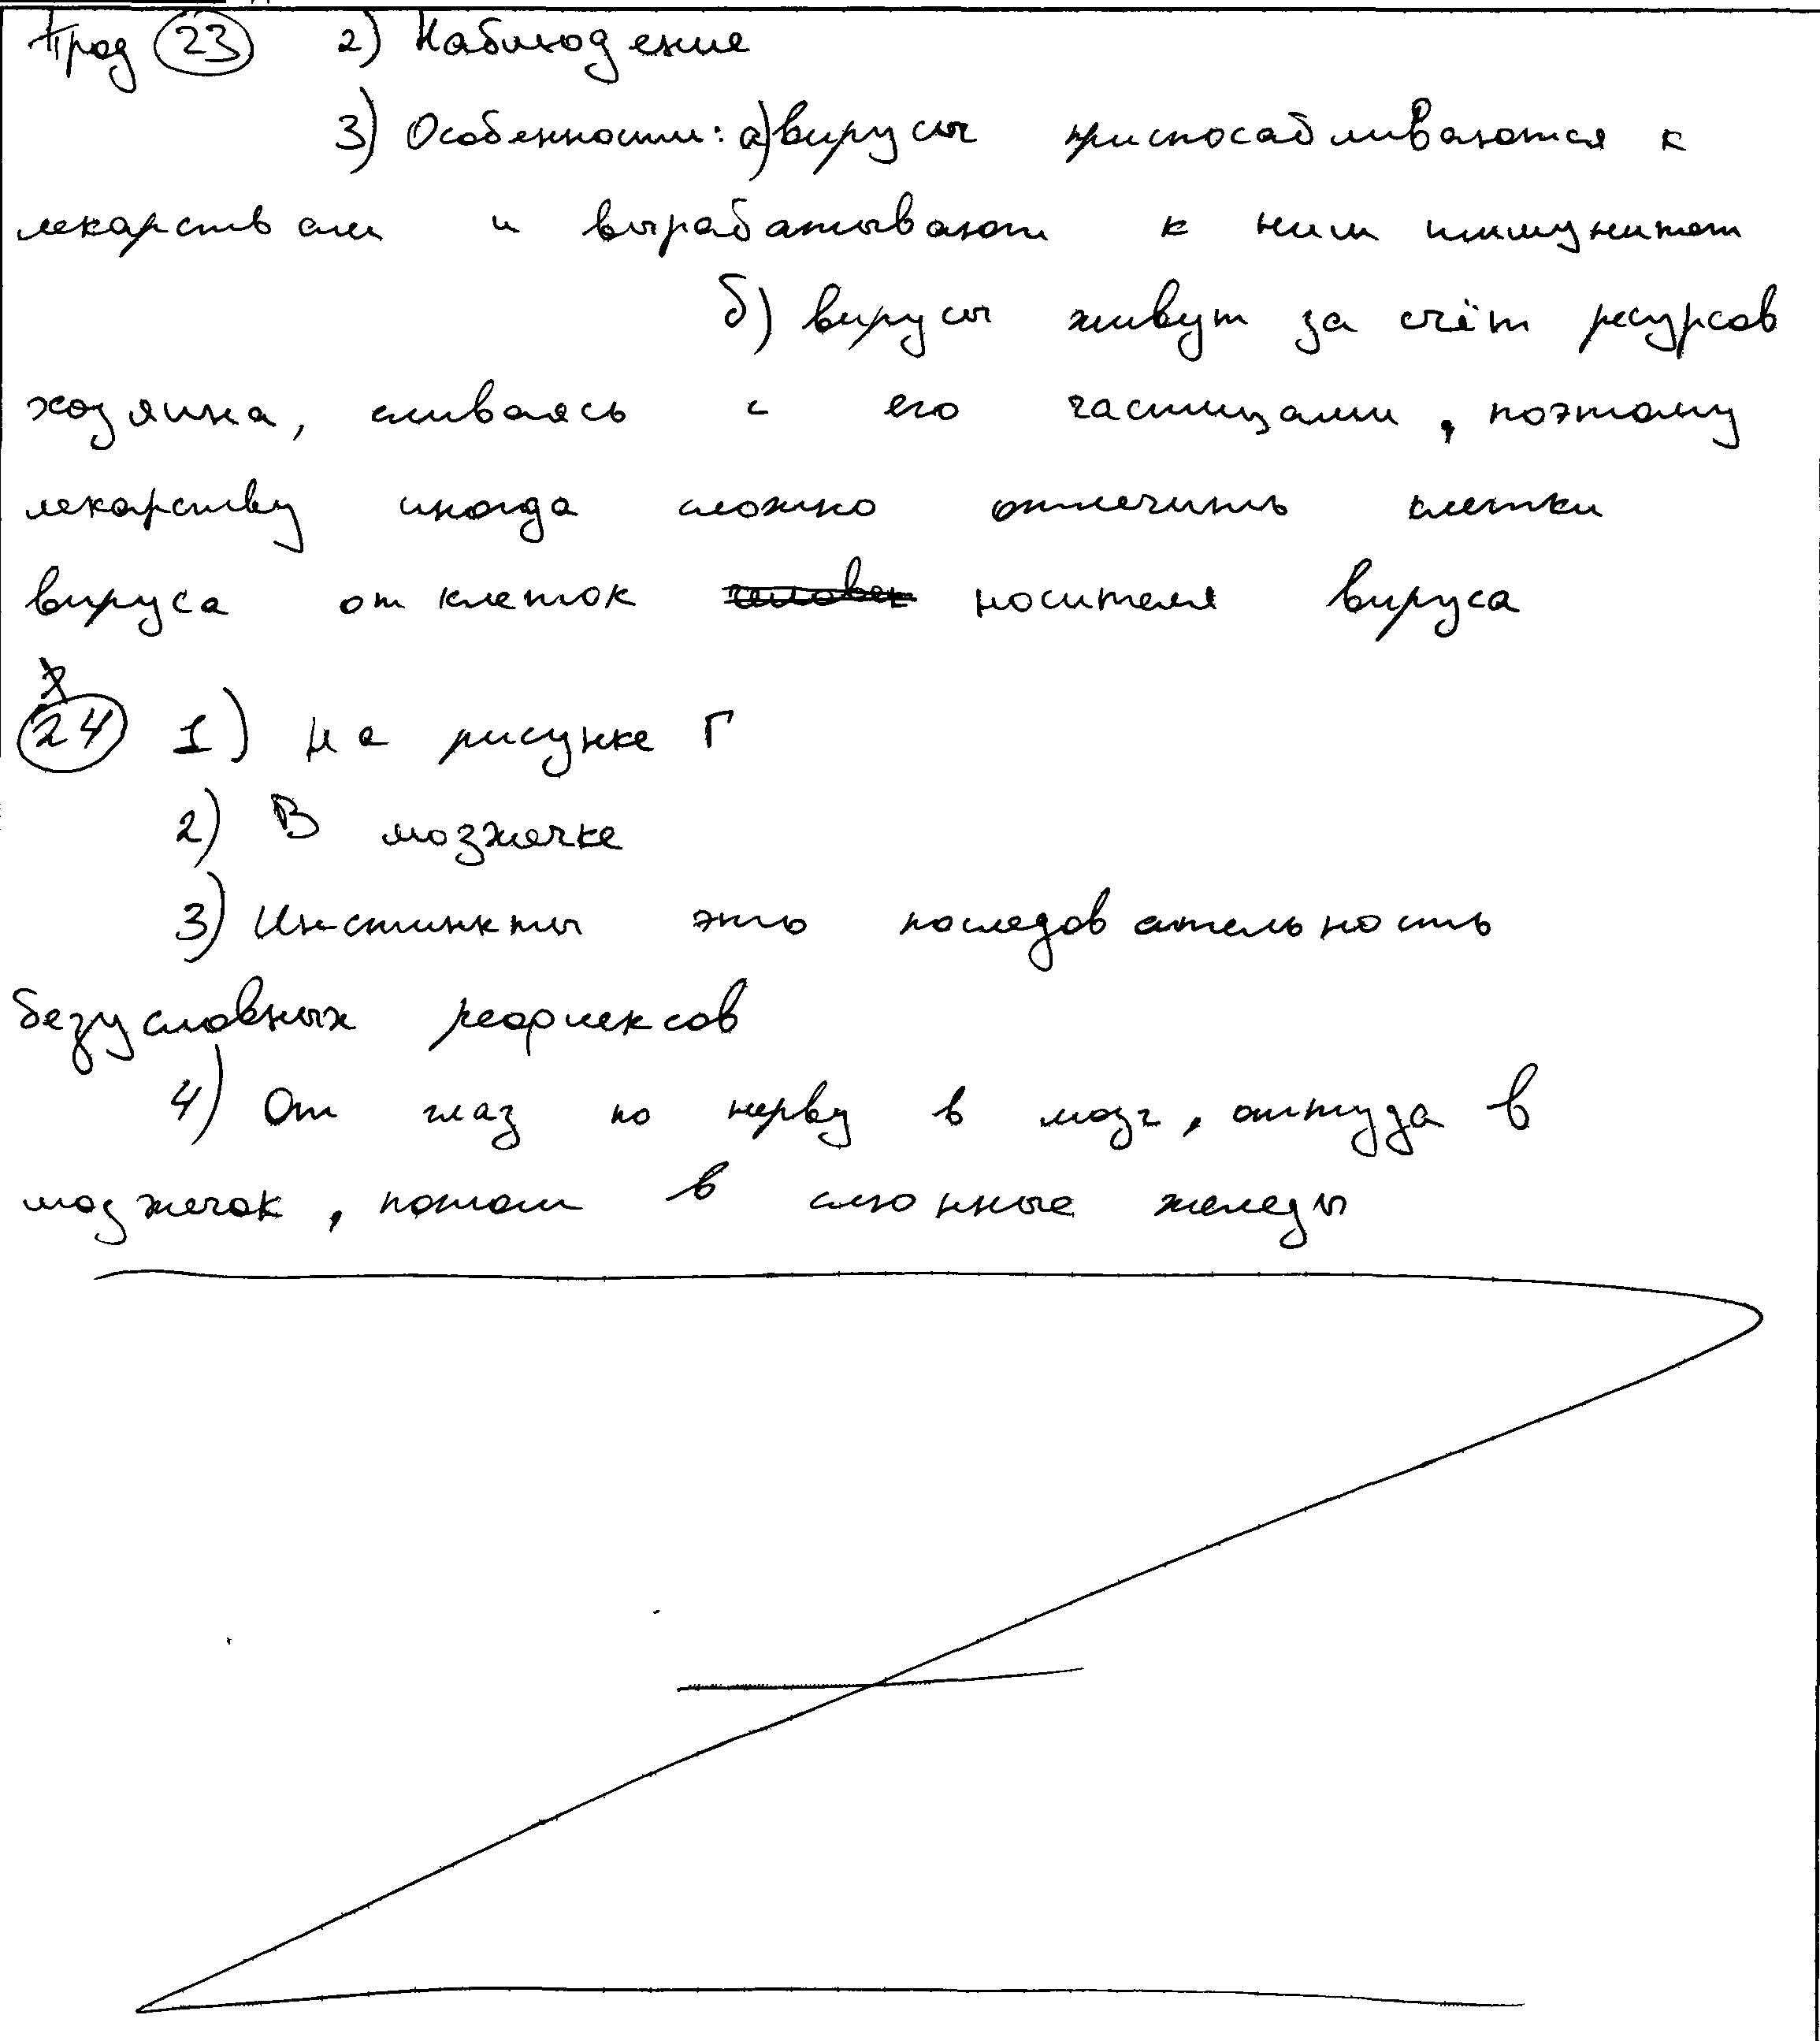 Прод 23 2) Наблюдение
3) Особенности: а) вирусы приспосабливаются к
лекарствам и вырабатывают к ним иммунитет
б) вирусы живут за счёт ресурсов
хозяина, сливаясь с его частицами, поэтому
лекарству иногда сложно отличить клетки
вируса от клеток носителя вируса
24 1) На рисунке Г
2) В мозжечке
3) Инстинкты это последовательность
безусловных рефлексов
4) От глаз по нерву в мозг, оттуда в
мозжечок, потом в слюнные железы